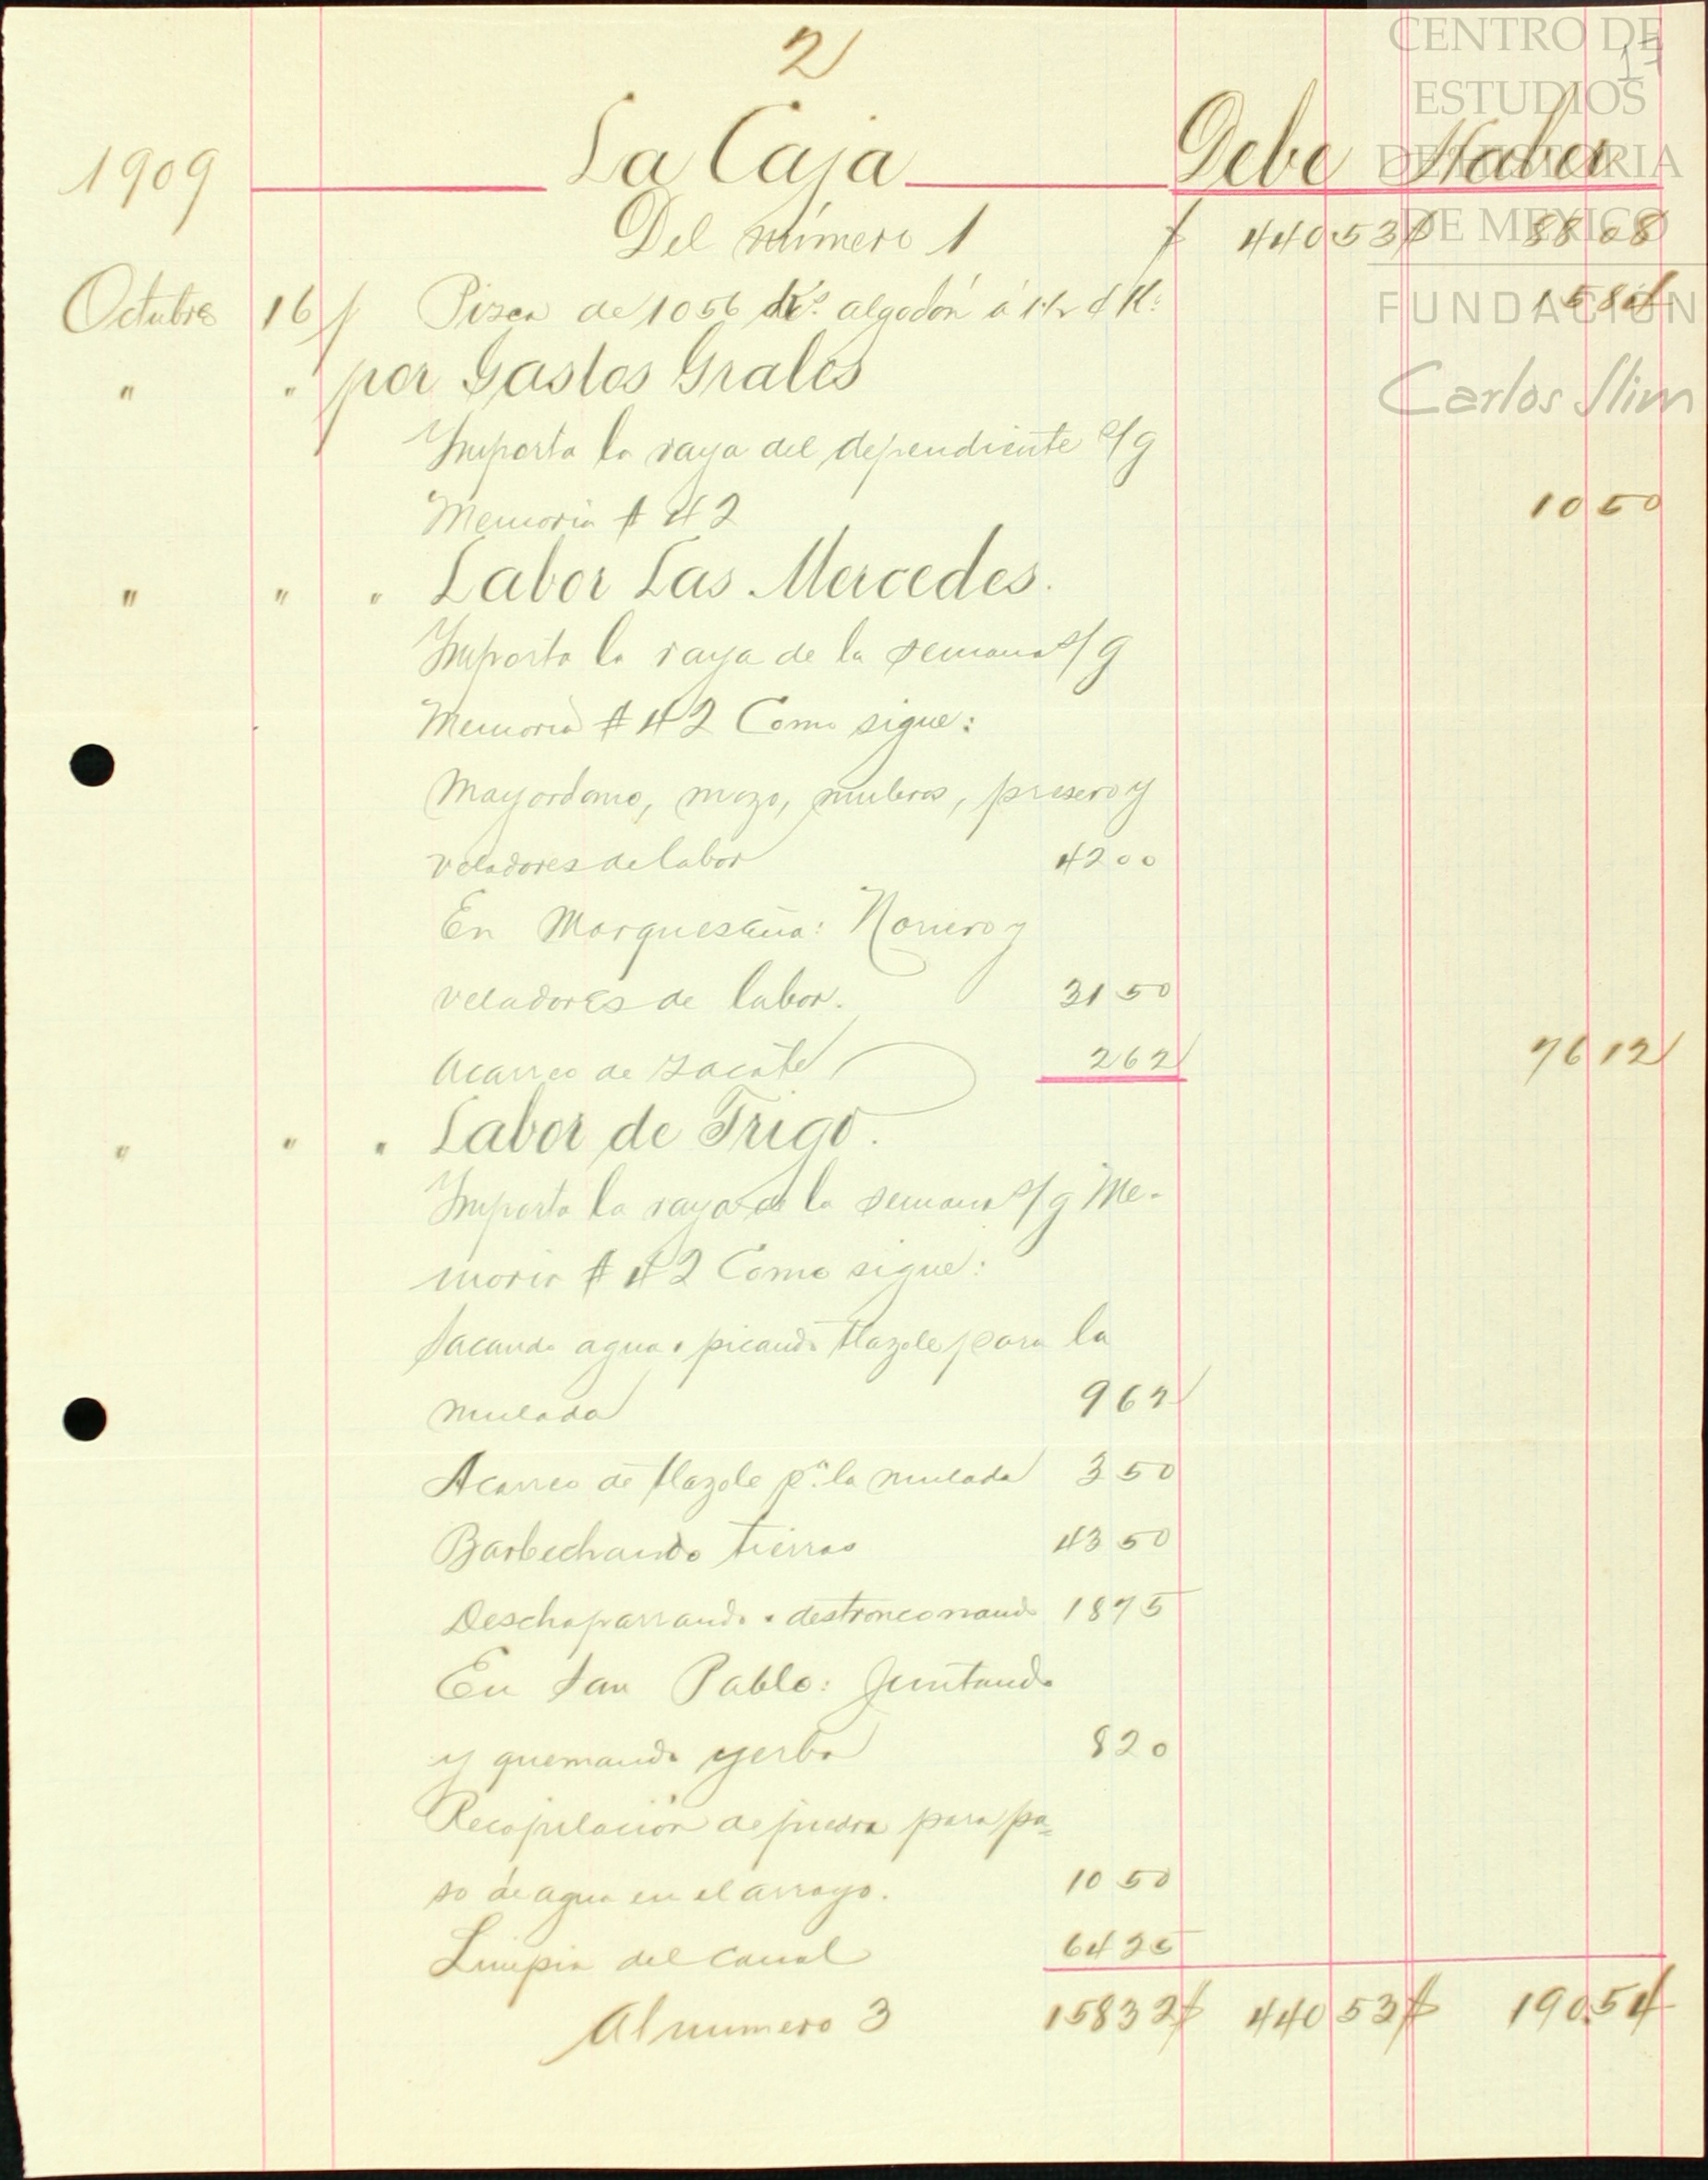 2
CENTRO DE
ESTUDIOS
DE HISTORIA
DE MEXICO
FUNDACIÓN
Carlos Slim
17
1909 La Caja Debe Haber
Del número 1 $ 440 53 $ 88 08
Octubre 16 p Pisca de 1056 Ks. algodón á 1½ ¢ K: 15 84
" " por Gastos Grales
Importa la raya del dependiente s/g
Memoria # 42 10 50
" " " Labor Las Mercedes.
Importa la raya de la semana s/g
Memoria # 42 Como sigue:
Mayordomo, mozo, muleros, presero y
veladores de labor 42 00
En Marquesaña: Noriero y
veladores de labor. 31 50
Acarreo de zacate 2 62 76 12
" " " Labor de Trigo.
Importa la raya de la semana s/g Me-
moria # 42 Como sigue:
Sacando agua, picando tlazole para la
mulada 9 62
Acarreo de tlazole pa. la mulada 3 50
Barbechando tierras 43 50
Deschaparrando, destronconando 18 75
En San Pablo: Juntando
y quemando yerba 8 20
Recopilación de piedra para pa=
so de agua en el arroyo. 10 50
Limpia del Canal 64 25
Al numero 3 158 32 $ 440 53 $ 190.54